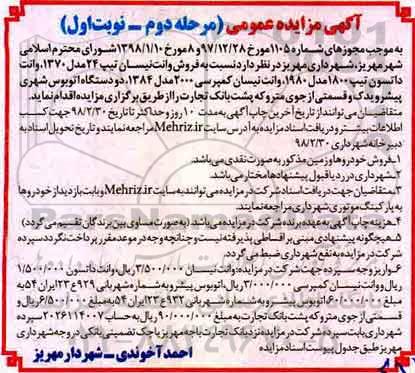 آگهی مزایده عمومی (مرحله دوم ــ نوبت اول)
به موجب مجوزهای شماره ۱۱۰۵ مورخ ۹۷/۱۲/۲۸ و ۸ مورخ ۱۳۹۸/۱/۱۰ شورای محترم اسلامی
شهر مهریز، شهرداری مهریز در نظر دارد نسبت به فروش وانت نیسان تیپ ۲۴ مدل ۱۳۷۰، وانت
داتسون تیپ ۱۸۰۰ مدل ۱۹۸۰، وانت نیسان کمپرسی ۲۰۰۰ مدل ۱۳۸۴، دو دستگاه اتوبوس شهری
پیشرو یدک و قسمتی از جوی متروکه پشت بانک تجارت را از طریق برگزاری مزایده اقدام نماید.
متقاضیان می توانند از تاریخ آخرین چاپ آگهی به مدت ۱۰ روز و حداکثر تا تاریخ ۹۸/۲/۳۰ جهت کسب
اطلاعات بیشتر و دریافت اسناد مزایده به آدرس سایت Mehriz.ir مراجعه نمایند و تاریخ تحویل اسناد به
دبیرخانه شهرداری ۹۸/۲/۳۰
۱ـ فروش خودروها و زمین مذکور به صورت نقدی می باشد.
۲ـ شهرداری در رد یا قبول پیشنهادها مختار می باشد.
۳ـ متقاضیان جهت دریافت اسناد شرکت در مزایده می توانند به سایت Mehriz.ir و بابت بازدید از خودروها
به پارکینگ موتوری شهرداری مراجعه نمایند.
۴ـ هزینه چاپ آگهی به عهده برنده شرکت در مزایده می باشد (به صورت مساوی بین برندگان تقسیم می گردد)
۵ـ هیچگونه پیشنهادی مبنی بر اقساطی پذیرفته نیست و چنانچه وجه در موعد مقرر پرداخت نگردد سپرده
شرکت در مزایده به نفع شهرداری ضبط می گردد.
۶ـ واریز وجه سپرده جهت شرکت در مزایده: وانت نیسان ۳/۵۰۰/۰۰۰ ریال و وانت داتسون ۱/۵۰۰/۰۰۰
ریال و وانت نیسان کمپرسی ۳/۰۰۰/۰۰۰ ریال، اتوبوس پیشرو به شماره شهربانی ۹۲۹ ع ۲۳ ایران ۵۴ به
مبلغ ۶/۰۰۰/۰۰۰، اتوبوس پیشرو به شماره شهربانی ۹۳۲ ع ۲۳ ایران ۵۴ به مبلغ ۶/۵۰۰/۰۰۰ ریال و
قسمتی از جوی متروکه پشت بانک تجارت به مبلغ ۹۰/۰۰۰/۰۰۰ ریال به حساب ۲۰۲۶۱۱۴۰۰۷ سپرده
شهرداری بابت سپرده شرکت در مزایده نزد بانک تجارت باجه مهریز یا چک تضمینی بانکی در وجه شهرداری
مهریز طبق جدول پیوست اسناد مزایده
احمد آخوندی ــ شهردار مهریز